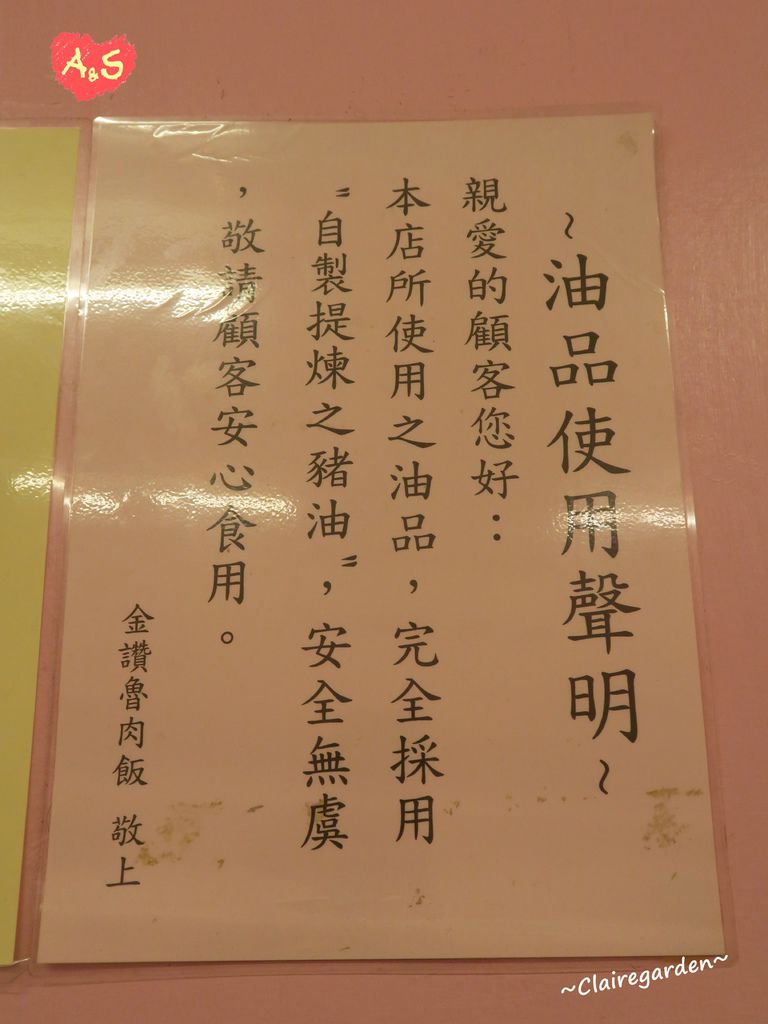 A&S
~油品使用聲明~
親愛的顧客您好：
本店所使用之油品，完全採用
〝自製提煉之豬油〞，安全無虞
，敬請顧客安心食用。
金讚魯肉飯 敬上
~Clairegarden~